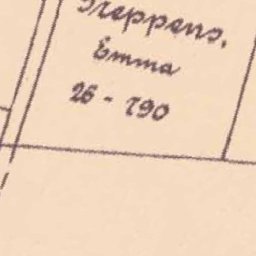 Steppens,
Emma
26 - 790